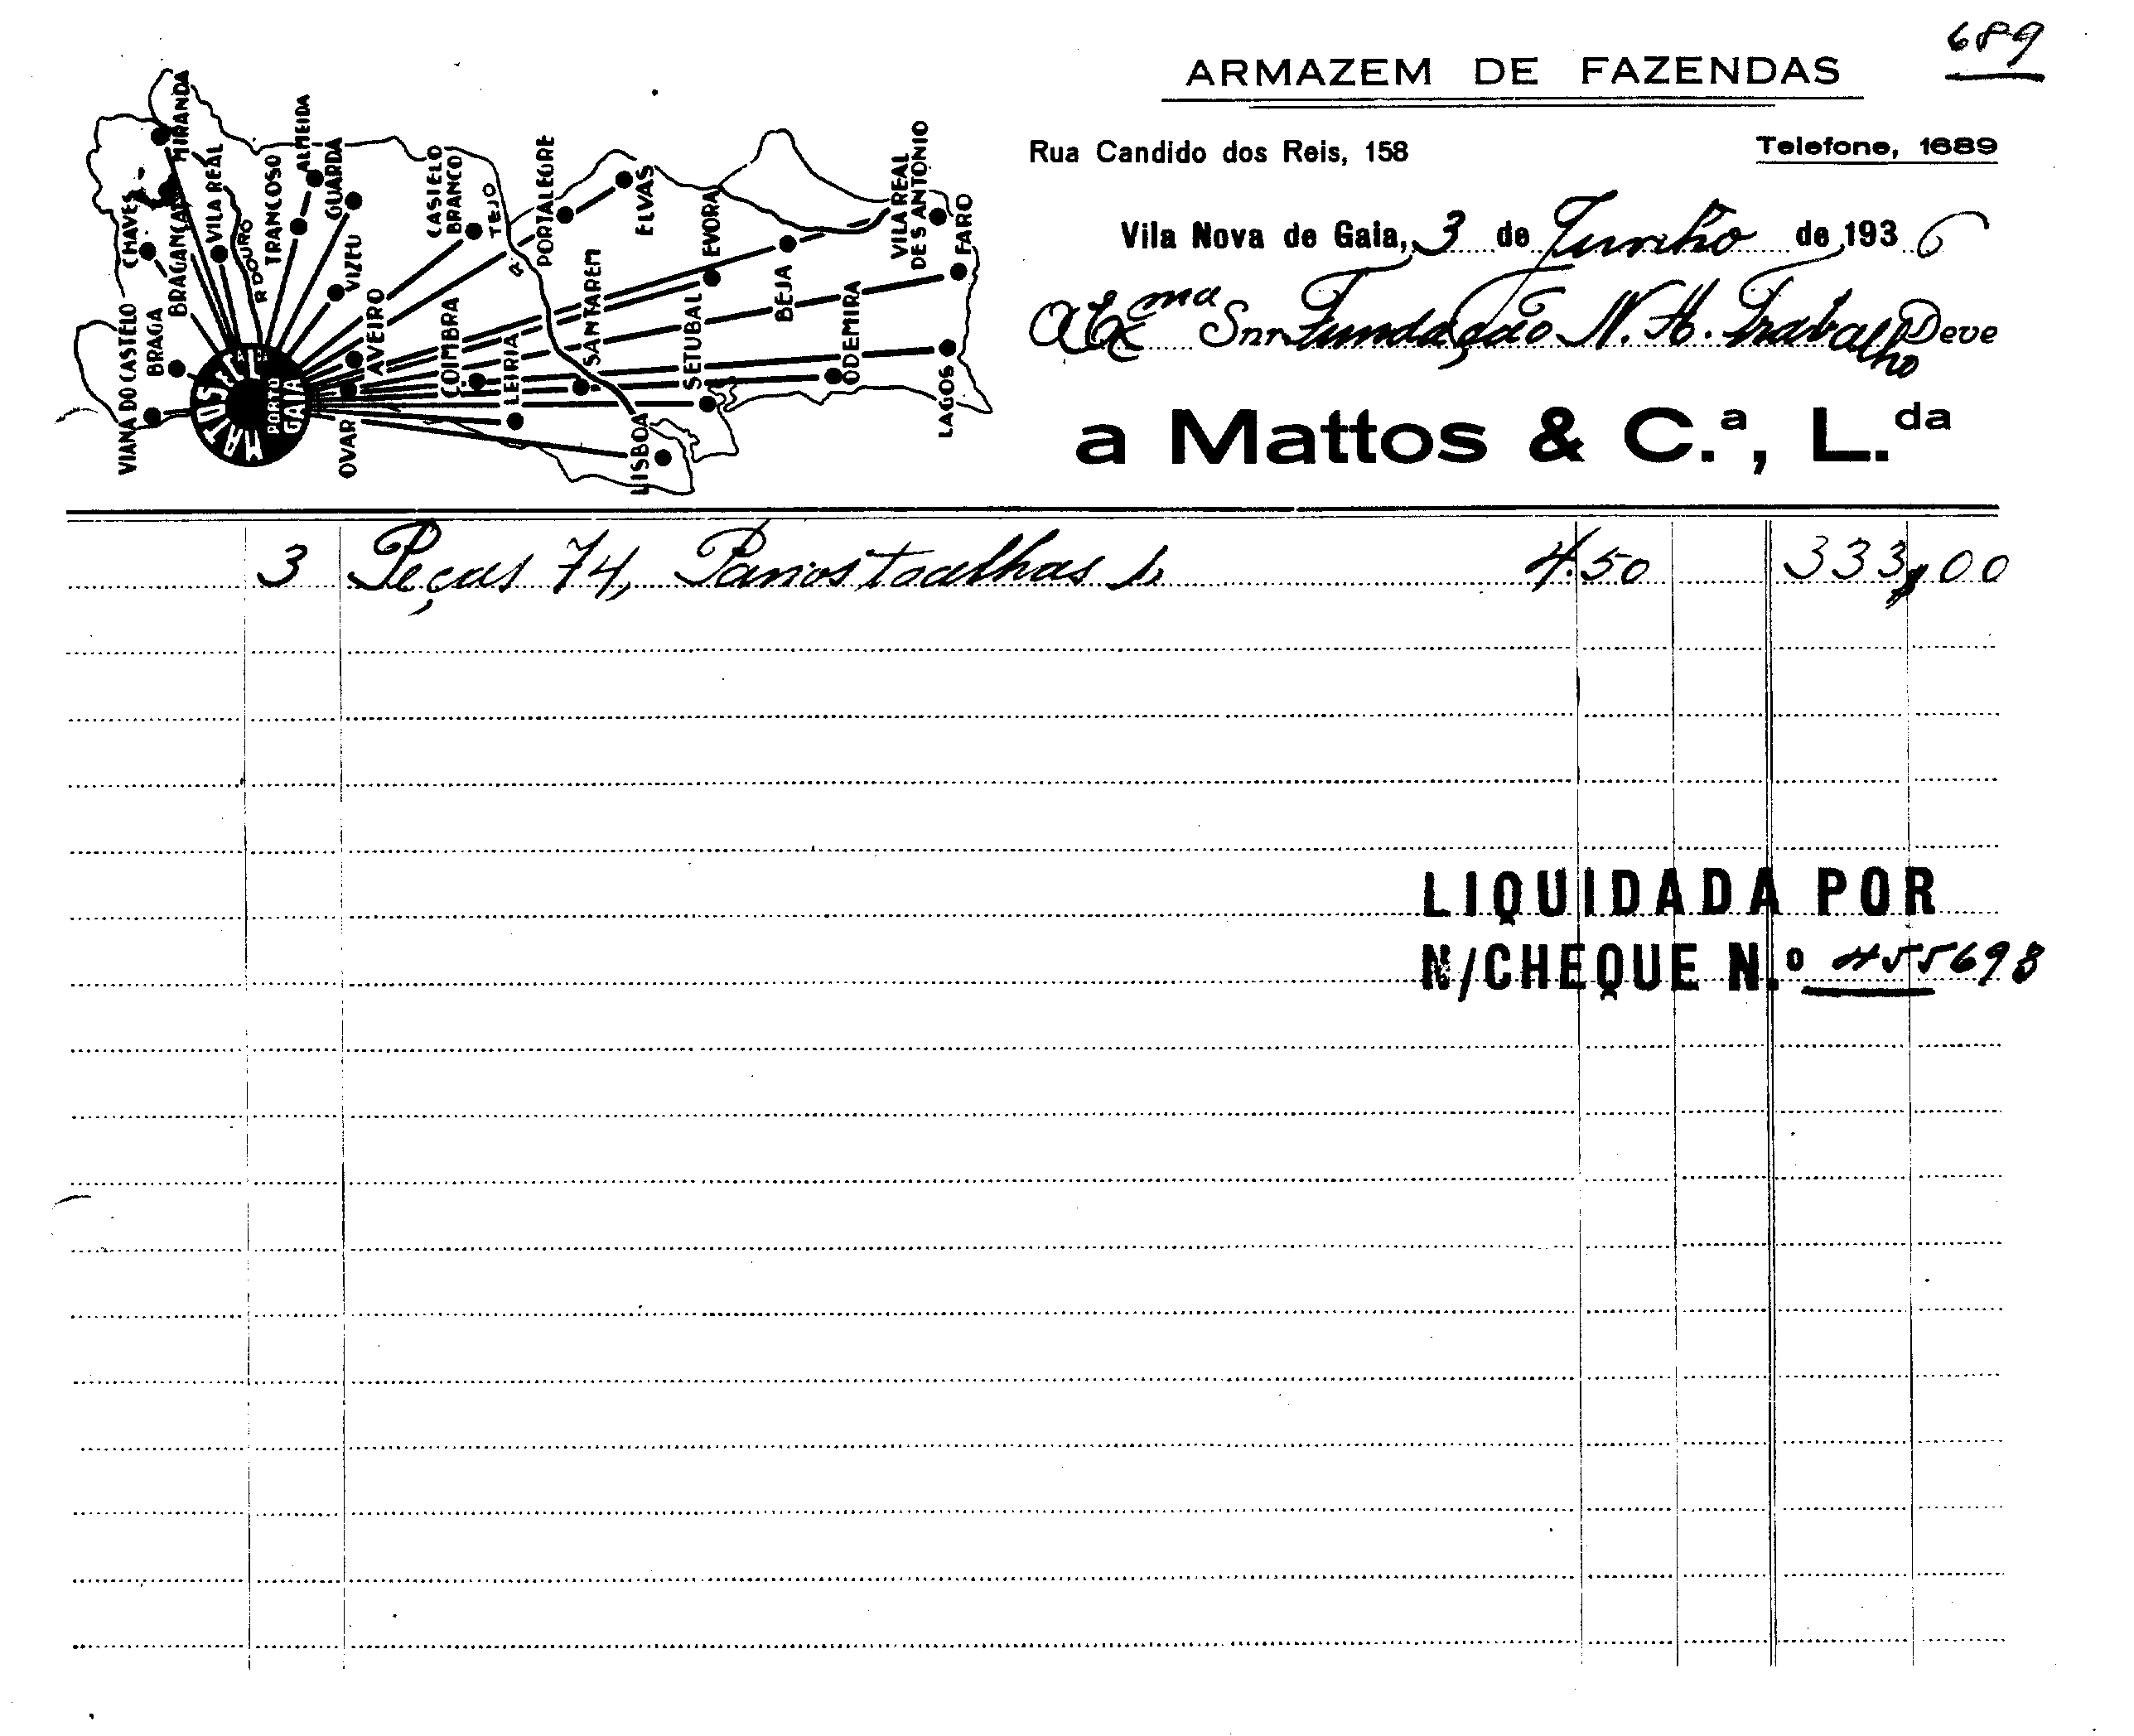 689
ARMAZEM DE FAZENDAS
Rua Candido dos Reis, 158 Telefone, 1689
Vila Nova de Gaia, 3 de Junho de 1936
Exma Snr. Fundação N. A. Trabalho Deve
a Mattos & C.ª, L.da
MIRANDA
CHAVES
BRAGANÇA
VILA REAL
R DOURO
TRANCOSO
ALMEIDA
GUARDA
VIZEU
VIANA DO CASTELO
BRAGA
MATOS
PORTO
GAIA
OVAR
AVEIRO
CASTELO
BRANCO
TEJO
R.
COIMBRA
LEIRIA
PORTALEGRE
SANTAREM
ELVAS
LISBOA
SETUBAL
EVORA
BEJA
ODEMIRA
VILA REAL
DE S ANTONIO
FARO
LAGOS
3 Peças 74, Panos toalhas 4.50 333$00
LIQUIDADA POR
N/CHEQUE N.º 455698